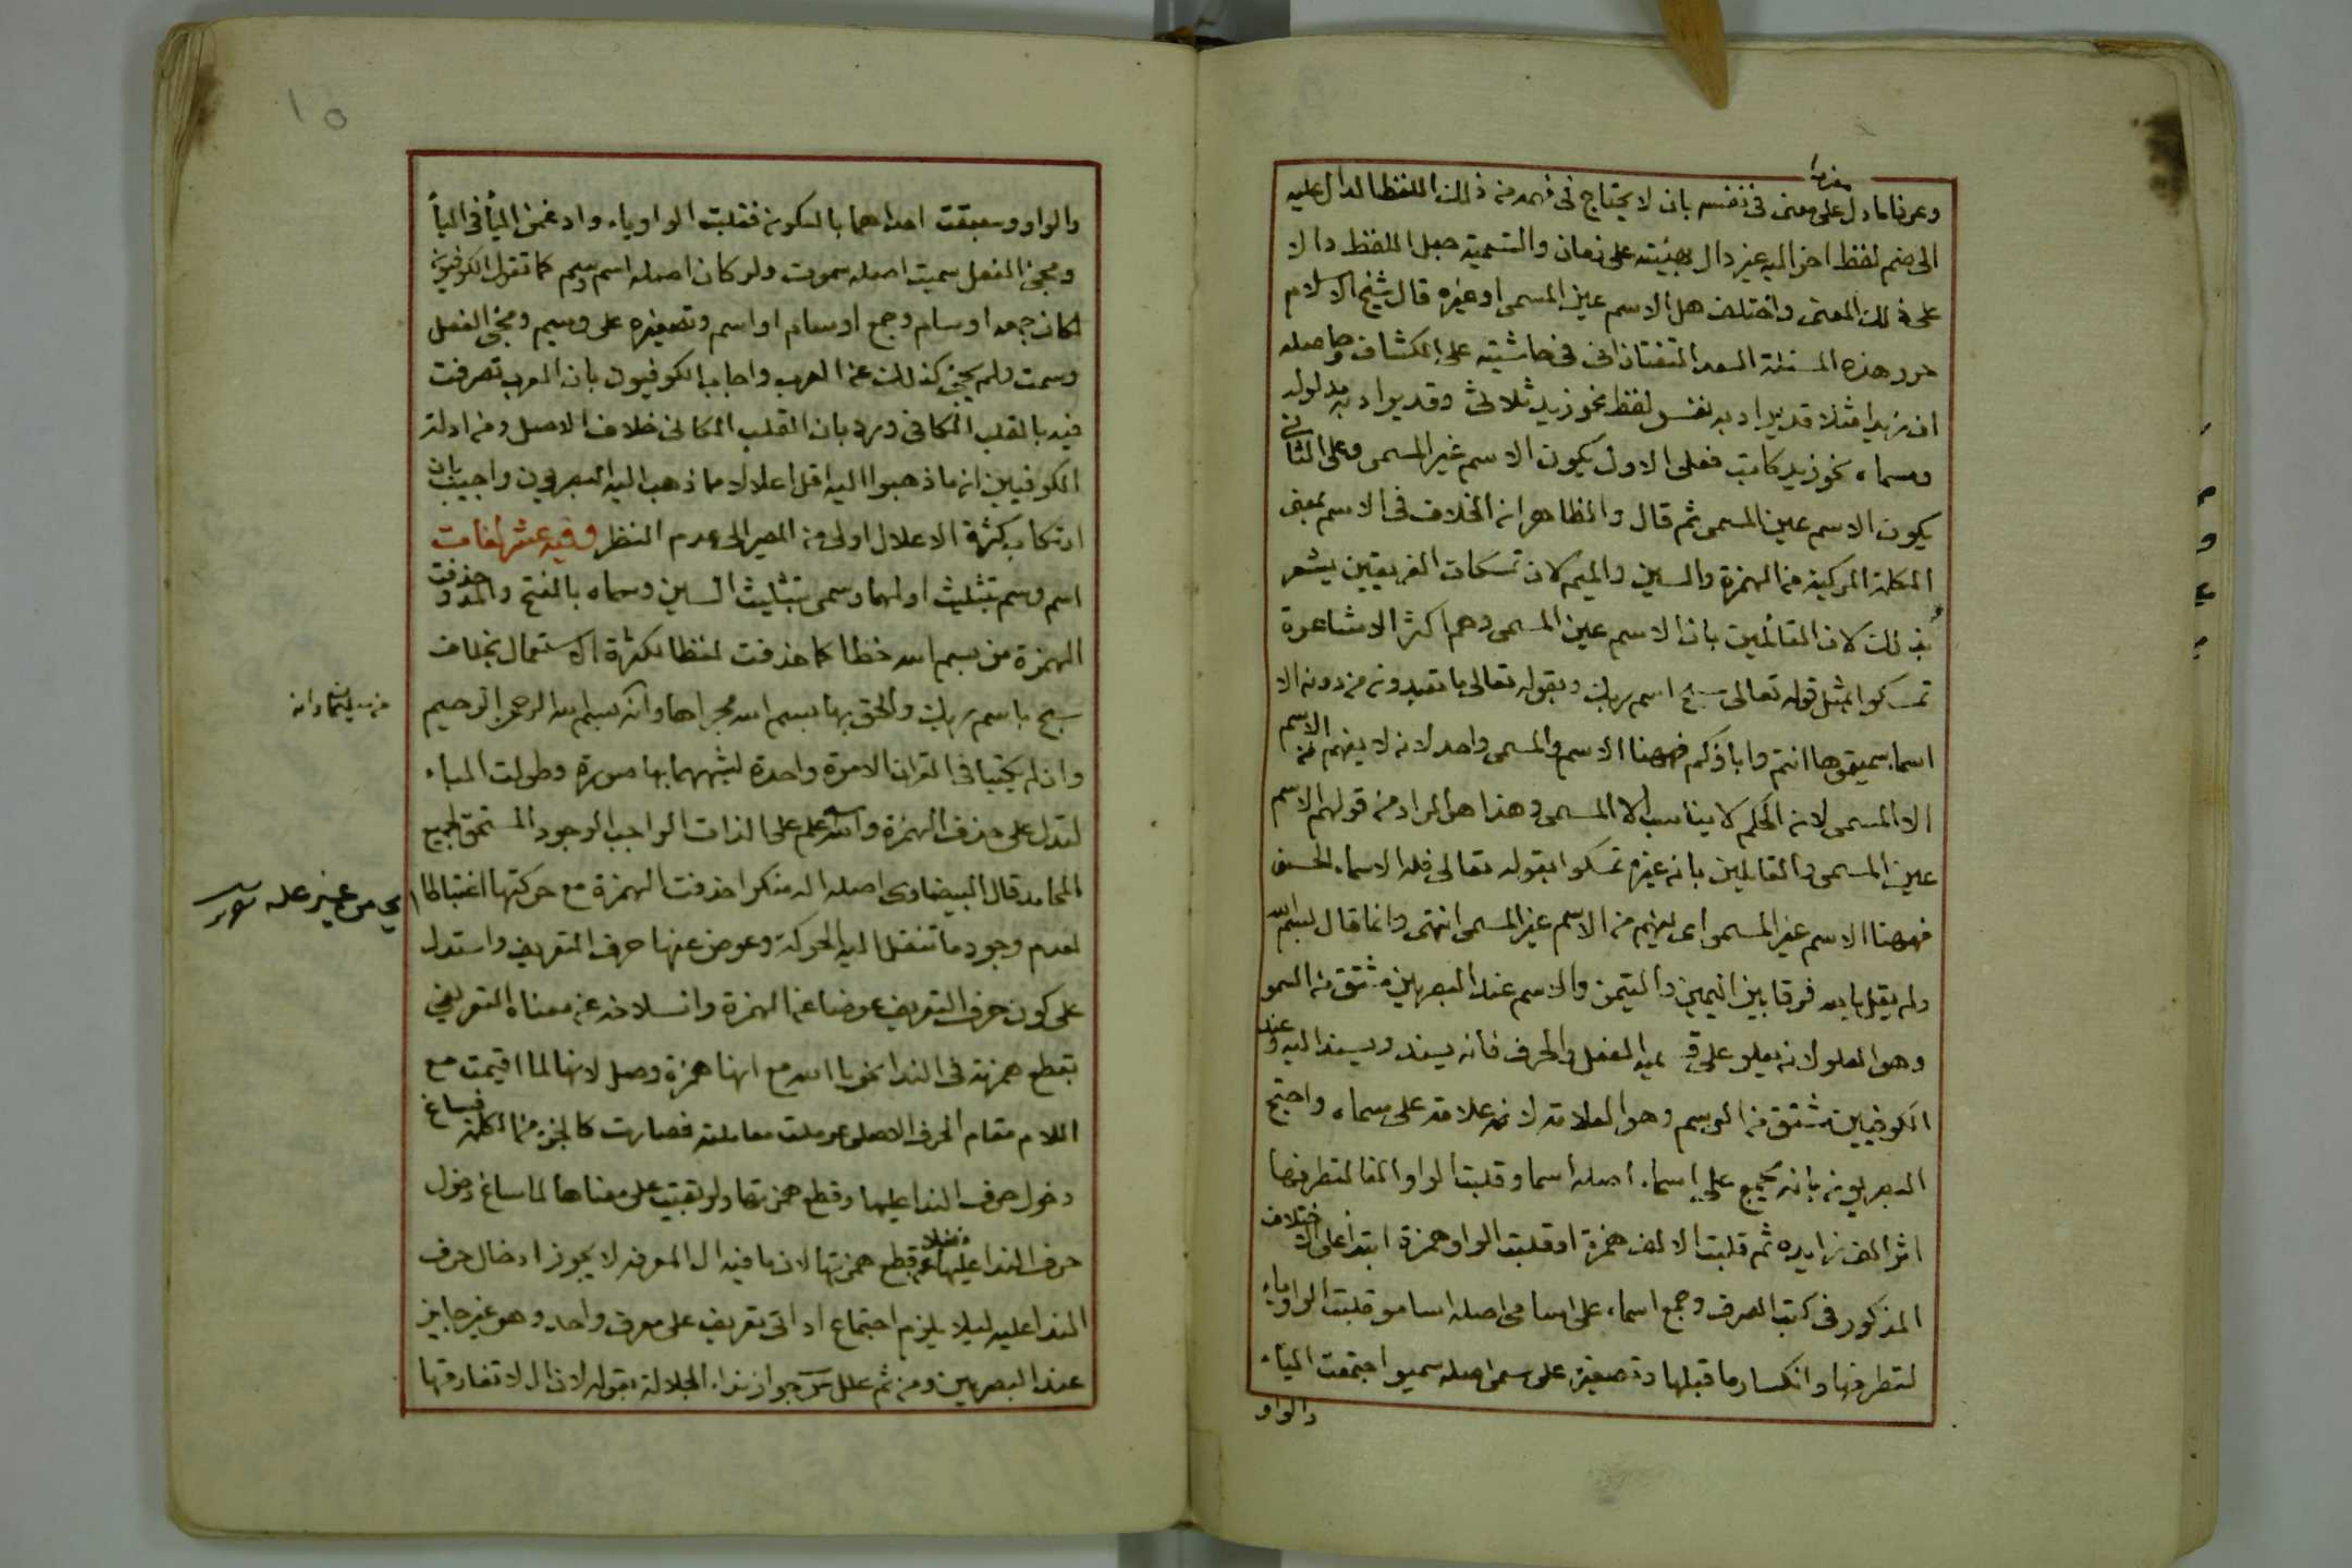 مفردا
وعرفا ما دل على معنى فى نفسه بان لا يحتاج فى فهمه من ذلك اللفظ الدال عليه
الى ضم لفظ اخر اليه غير دال بهيئته على زمان والتسمية جعل اللفظ دالا
على ذلك المعنى واختلف هل الاسم عين المسمى او غيره قال شيخ الاسلام
حرر هذه المسئلة السعد التفتازانى فى حاشيته على الكشاف وحاصله
ان زيدا مثلا قد يراد به نفس لفظه نحو زيد ثلاثى وقد يراد به مدلوله
ومسماه نحو زيد كاتب فعلى الاول يكون الاسم غير المسمى وعلى الثانى
يكون الاسم عين المسمى ثم قال والظاهر ان الخلاف فى الاسم بمعنى
الكلمة المركبة من الهمزة والسين والميم لان تمسكات الفريقين يشعر
بذلك لان القائلين بان الاسم عين المسمى وهم اكثر الاشاعرة
تمسكوا بمثل قوله تعالى سبح اسم ربك وبقوله تعالى ما تعبدون من دونه الا
اسما سميتموها انتم واباؤكم فههنا الاسم والمسمى واحد لانه لا يفهم من الاسم
الا المسمى لان الحكم لا يناسب الا المسمى وهذا هو المراد من قولهم الاسم
عين المسمى والقايلين بانه غيره تمسكوا بقوله تعالى فله الاسماء الحسنى
فههنا الاسم غير المسمى اى يفهم من الاسم غير المسمى انتهى وانما قال بسم الله
ولم يقل بالله فرقا بين اليمين والتيمن والاسم عند البصريين مشتق من السمو
وهو العلو لانه يعلو على قسميه الفعل والحرف فانه يسند ويسند اليه وعند
الكوفيين مشتق من الوسم وهو العلامة لانه علامة على مسماه واحتج
البصريون بانه يجمع على اسماء اصله اسماو قلبت الواو الفا لتطرفها
اثر الف زايده ثم قلبت الالف همزة او قلبت الواو همزة ابتداء على الاختلاف
المذكور فى كتب الصرف وجمع اسماء على اسامى اصله اسامو قلبت الواو ياء
لتطرفها وانكسار ما قبلها وتصغيره على سمى اصله سميو اجتمعت الياء
والواو
١٥
والواو وسبقت احداهما بالسكون فقلبت الواو ياء وادغمت الياء فى الياء
ومجئ الفعل سميت اصله سموت ولو كان اصله اسم وسم كما تقول الكوفيون
لكان جمعه اوسام وجمع اوسام اواسم وتصغيره على وسيم ومجئ الفعل
وسمت ولم يجئ كذلك عن العرب واجاب الكوفيون بان العرب تصرفت
فيه بالقلب المكانى ورد بان القلب المكانى خلاف الاصل ومن ادلة
الكوفيين ان ما ذهبوا اليه اقل اعلالا مما ذهب اليه البصريون واجيب بان
ارتكاب كثرة الاعلال اولى من المصير الى عدم النظر وفيه عشر لغات
اسم وسم بتثليث اولهما وسمى بتثليث السين وسماه بالفتح والمد وحذفت
الهمزة من بسم الله خطا كما حذفت لفظا لكثرة الاستعمال بخلاف
سبح باسم ربك والحق بها بسم الله مجراها وانه بسم الله الرحمن الرحيم
من سليمان وانه
وان لم يكتبا فى القران الا مرة واحدة لشبههما بها صورة وطولت الباء
لتدل على حذف الهمزة والله علم على الذات الواجب الوجود المستحق لجميع
المحامد قال البيضاوى اصله اله منكرا حذفت الهمزة مع حركتها اعتباطا
اى من غير علة
لعدم وجود ما تنقل اليه الحركة وعوض عنها حرف التعريف واستدل
على كون حرف التعريف عوضا عن الهمزة وانسلاخه عن معناه التعريفى
بقطع همزته فى الندا نحو يا الله مع انها همزة وصل لانها لما اقيمت مع
اللام مقام الحرف الاصلى عوملت معاملته فصارت كالجزء من الكلمة فساغ
دخول حرف الندا عليها وقطع همزتها ولو بقيت على معناها لما ساغ دخول
حرف الندا عليها فضلا عن قطع همزتها لان ما فيه ال المعرفه لا يجوز ادخال حرف
الندا عليه ليلا يلزم اجتماع اداتى تعريف على معرف واحد وهو غير جايز
عند البصريين ومن ثم علل جواز نداء الجلالة بقوله لان ال لا تفارقها